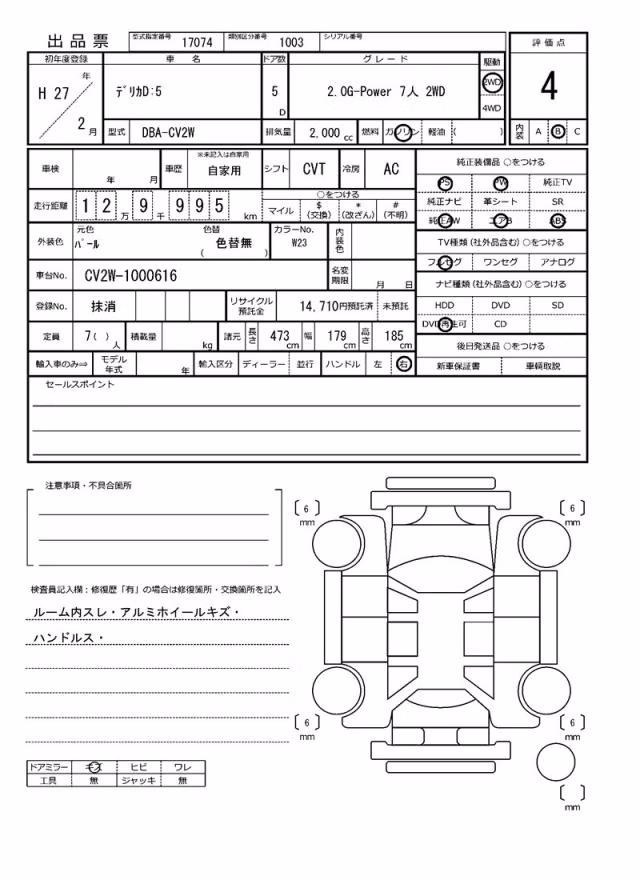 出品票 型式指定番号 17074 類別区分番号 1003 シリアル番号
初年度登録 車名 ドア数 グレード 駆動 評価点
H 27 年 2 月 ﾃﾞﾘｶD:5 5 D 2.0G-Power 7人 2WD 2WD 4WD 4
型式 DBA-CV2W 排気量 2,000 cc 燃料 ガソリン 軽油 ( ) 内装 A B C
車検 年 月 車歴 ※未記入は自家用 自家用 シフト CVT 冷房 AC 純正装備品 ○をつける
PS PW 純正TV
走行距離 1 2 万 9 千 9 9 5 km ○をつける 純正ナビ 革シート SR
マイル $ (交換) * (改ざん) # (不明) 純正AW エアB ABS
外装色 元色 ﾊﾟｰﾙ 色替 ( 色替無 ) カラーNo. W23 内装色 TV種類 (社外品含む) ○をつける
フルセグ ワンセグ アナログ
車台No. CV2W-1000616 名変期限 月 日 ナビ種類 (社外品含む) ○をつける
登録No. 抹消 リサイクル預託金 14,710円預託済 未預託 HDD DVD SD
DVD再生可 CD
定員 7( ) 人 積載量 kg 諸元 長さ 473 cm 幅 179 cm 高さ 185 cm 後日発送品 ○をつける
輸入車のみ⇒ モデル年式 年 輸入区分 ディーラー 並行 ハンドル 左 右 新車保証書 車輌取説
セールスポイント
注意事項・不具合箇所
6 mm 6 mm
検査員記入欄：修復歴「有」の場合は修復箇所・交換箇所を記入
ルーム内スレ・アルミホイールキズ・
ハンドルス・
6 mm 6 mm
ドアミラー キズ ヒビ ワレ
工具 無 ジャッキ 無
mm